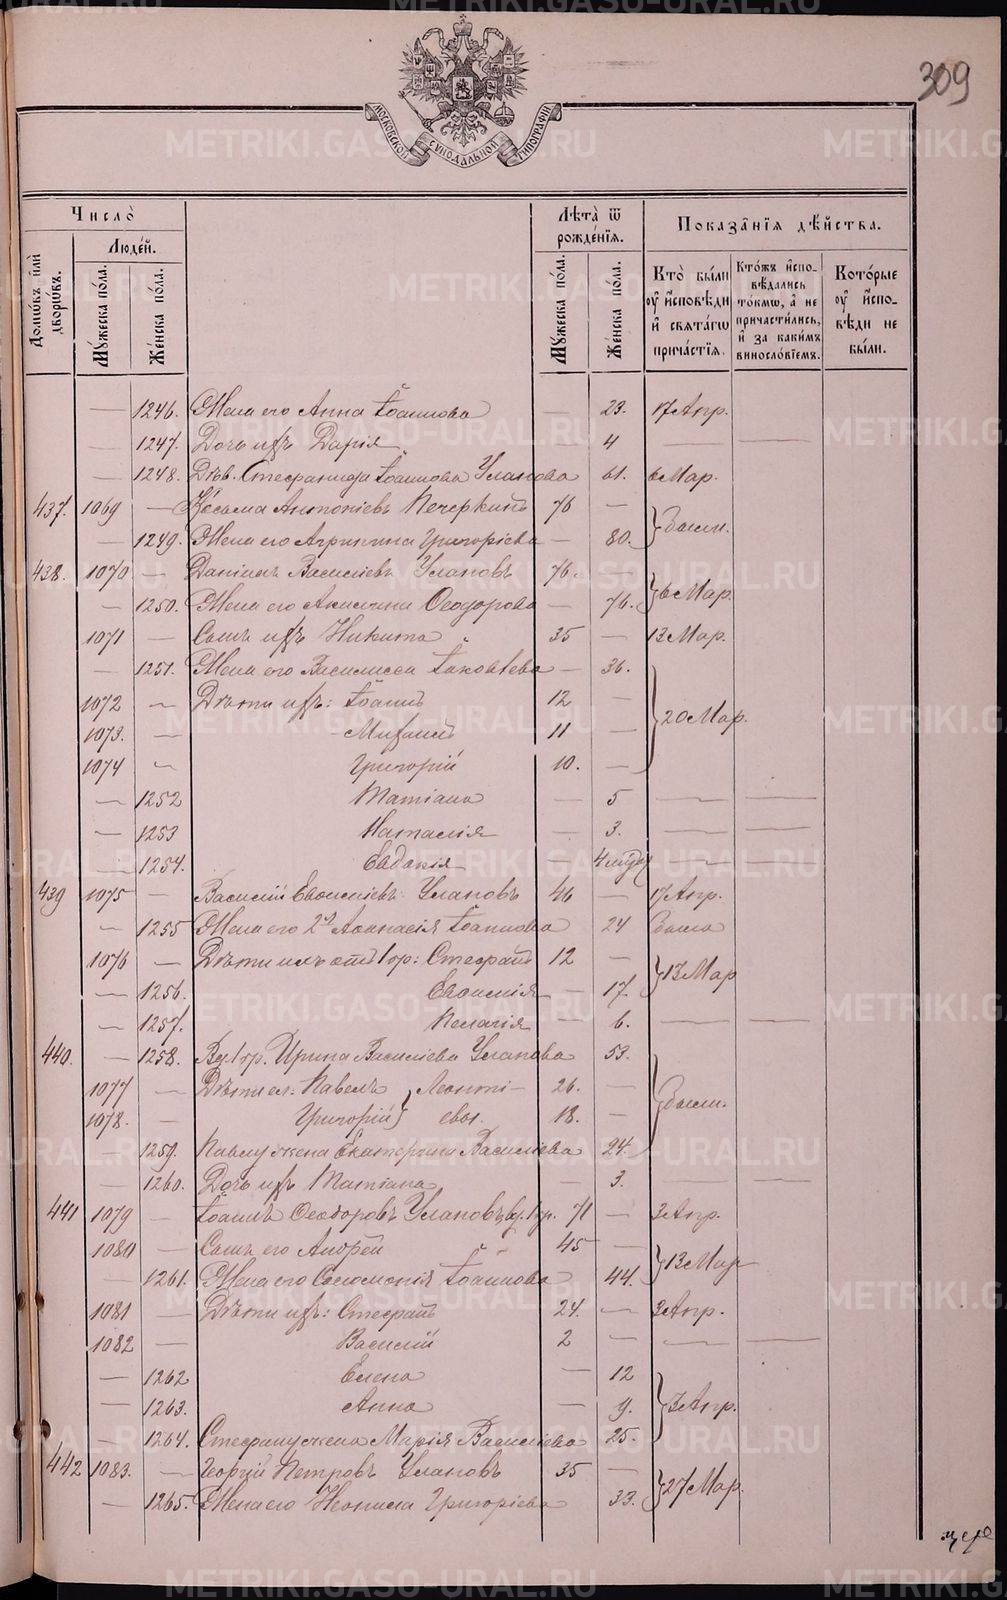 309
МОСКОВСКОЙ СѴНОДАЛЬНОЙ ТИПОГРАФІИ
METRIKI.GASO-URAL.RU
Число̀
Людей.
Домѡвъ и҆лѝ дворѡвъ.
Мꙋжеска по́ла.
Же́нска по́ла.
Лѣта̀ ѿ рожде́нїѧ.
Мꙋжеска по́ла.
Же́нска по́ла.
Показа̑нїѧ дѣ́йства.
Кто̀ бы́ли ᲂу҆ и҆сповѣ́ди и҆ свѧта́гѡ прича́стїѧ.
Кто́жъ и҆спо-
вѣ́дались
то́кмѡ, а҆ не
причасти́лись,
и҆ за каки́мъ
виносло́вїемъ.
Кото́рые
ᲂу҆ и҆спо-
вѣ́ди не
бы́ли.
— 1246. Жена его Анна Іоаннова — 23. 17 Апр.
— 1247. Дочь ихъ Дарія — 4 — —
— 1248. Дѣв. Стефанида Іоаннова Уланова 61. 6 Мар.
437. 1069 — Косьма Антоніевъ Печеркинъ 76 —
— 1249. Жена его Агрипина Григоріева — 80. } были.
438. 1070 — Даніилъ Василіевъ Улановъ 76. —
— 1250. Жена его Акилина Ѳеодорова — 76. } 6 Мар.
1071 — Сынъ ихъ Никита 35 — 13 Мар.
— 1251. Жена его Василисса Іаковлева — 36.
1072 — Дѣти ихъ: Іоаннъ 12 —
1073. — Михаилъ 11 — } 20 Мар.
1074 — Григорій 10. —
— 1252 Татіана — 5 — —
— 1253 Наталія — 3. — —
— 1254. Евдокія — 4 — —
439 1075 — Василій Улановъ 46 — 17 Апр.
— 1255 Жена его 2 Аѳанасія Іоаннова 24 была
1076 — Дѣти отъ 1 бр: Стефанъ 12 —
— 1256. Евѳимія — 17. } 13 Мар
— 1257. Пелагія — 6. — —
440. — 1258. Вд. 1 бр. Ирина Василіева Уланова 53.
1077 — Дѣти ея: Павелъ } Леонті- 26. —
1078. — Григорій } евы. 18. — } были.
— 1259. Павлу жена Екатерина Василіева 24.
— 1260. Дочь ихъ Татіана — 3. —
441 1079 — Іоаннъ Ѳеодоровъ Улановъ вд. 1 бр. 71 — 3 Апр.
1080 — Сынъ его Андрей 45 —
— 1261. Жена его Соломонія Іоаннова 44. } 13 Мар
1081 — Дѣти ихъ: Стефанъ 24. — 3 Апр.
1082 — Василій 2 — — —
— 1262 Елена — 12
— 1263. Анна — 9. } 3 Апр.
— 1264. Стефану жена Марія Василіева 25.
442 1083. — Георгій Петровъ Улановъ 35 —
— 1265. Жена его Неонила Григоріева 33. } 27 Мар.